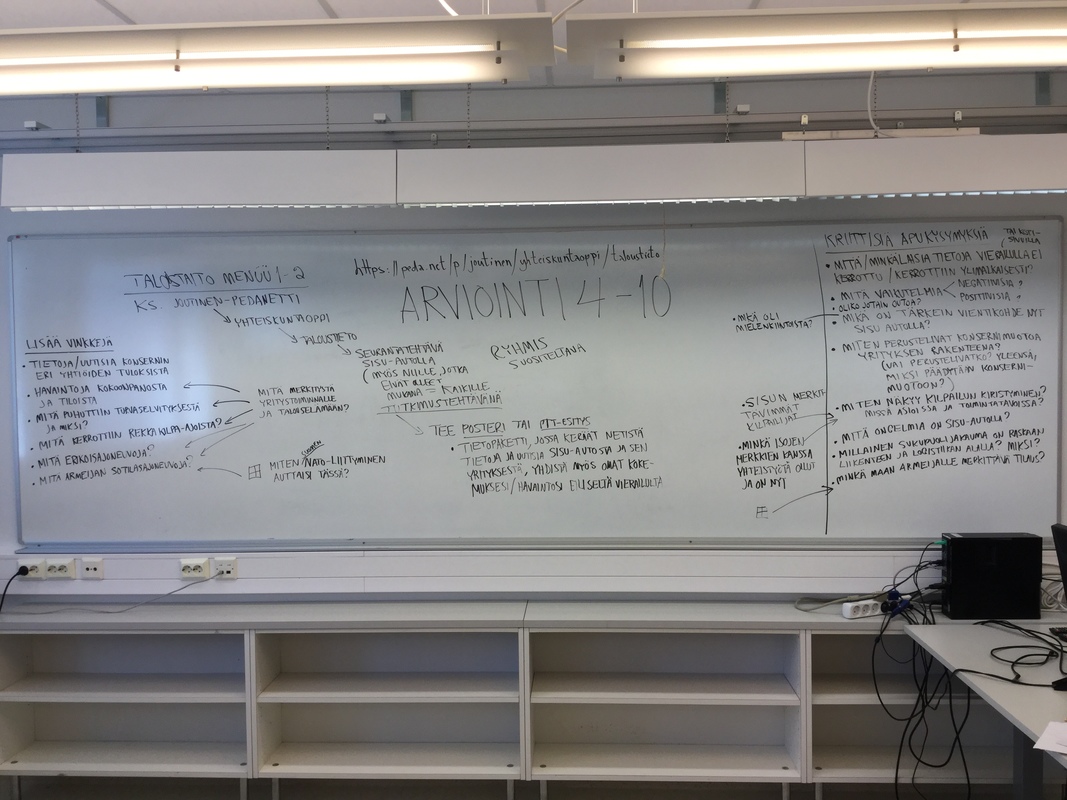 https://peda.net/p/joutinen/yhteiskuntaoppi/taloustieto
ARVIOINTI 4-10
TALOSTAITO MENÜÜ 1-2
KS. JOUTINEN-PEDANETTI
YHTEISKUNTAOPPI
TALOUSTIETO
SEURANTATEHTÄVÄ
SISU-AUTOLLA
(MYÖS NIILLE, JOTKA
EIVÄT OLLEET
MUKANA = KAIKILLE
TUTKIMUSTEHTÄVÄNÄ
RYHMIS
SUOSITELTAVA
TEE POSTERI TAI PPT-ESITYS
• TIETOPAKETTI, JOSSA KERÄÄT NETISTÄ
TIETOJA JA UUTISIA SISU-AUTOSTA JA SEN
YRITYKSESTÄ, YHDISTÄ MYÖS OMAT KOKE-
MUKSESI/HAVAINTOSI EILISELTÄ VIERAILULTA
LISÄÄ VINKKEJÄ
• TIETOJA/UUTISIA KONSERNIN
ERI YHTIÖIDEN TULOKSISTA
• HAVAINTOJA KOKOONPANOSTA
JA TILOISTA
• MITÄ PUHUTTIIN TURVASELVITYKSESTÄ
JA MIKSI?
• MITÄ KERROTTIIN REKKAKILPA-AJOISTA?
• MITÄ ERIKOISAJONEUVOJA?
• MITÄ ARMEIJAN SOTILASAJONEUVOJA?
MITÄ MERKITYSTÄ
YRITYSTOIMINNALLE
JA TALOUSELÄMÄÄN?
SUOMEN
MITEN NATO-LIITTYMINEN
AUTTAISI TÄSSÄ?
• MIKÄ OLI
MIELENKIINTOISTA?
• SISUN MERKIT-
TÄVIMMÄT
KILPAILIJAT
• MINKÄ ISOJEN
MERKKIEN KANSSA
YHTEISTYÖTÄ OLLUT
JA ON NYT
KRIITTISIÄ APUKYSYMYKSIÄ
• MITÄ/MINKÄLAISIA TIETOJA VIERAILULLA EI
KERROTTU/KERROTTIIN YLIMALKAISESTI?
• MITÄ VAIKUTELMIA
NEGATIIVISIA?
POSITIIVISIA?
• OLIKO JOTAIN OUTOA?
• MIKÄ ON TÄRKEIN VIENTIKOHDE NYT
SISU AUTOLLA?
• MITEN PERUSTELIVAT KONSERNIMUOTOA
YRITYKSEN RAKENTEENA?
(VAI PERUSTELIVATKO? YLEENSÄ,
MIKSI PÄÄDYTÄÄN KONSERNI-
MUOTOON?)
• MITEN NÄKYY KILPAILUN KIRISTYMINEN?
MISSÄ ASIOISSA JA TOIMINTATAVOISSA?
• MITÄ ONGELMIA ON SISU-AUTOLLA?
• MILLAINEN SUKUPUOLIJAKAUMA ON RASKAAN
LIIKENTEEN JA LOGISTIIKAN ALALLA? MIKSI?
• MINKÄ MAAN ARMEIJALLE MERKITTÄVÄ TILAUS?